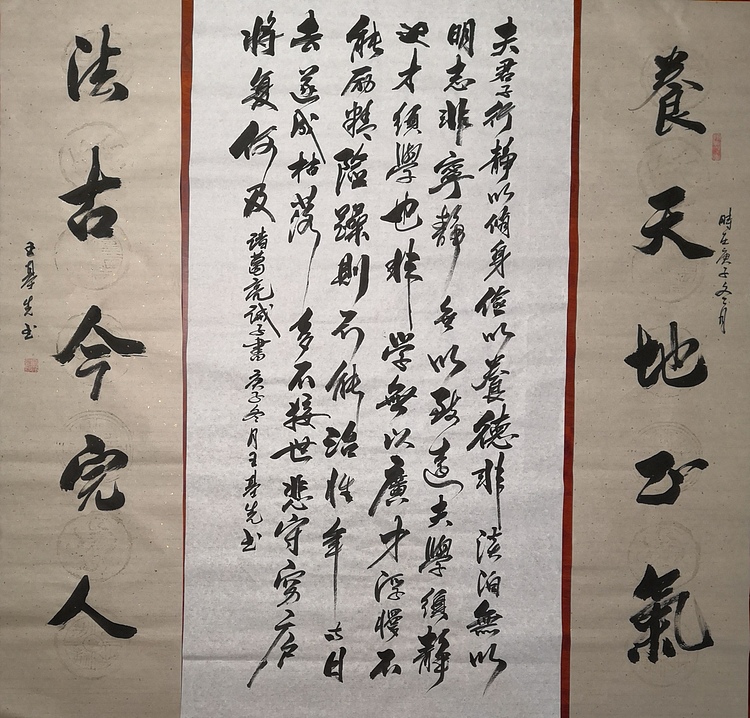 養天地正氣
時在庚子冬月
夫君子行靜以脩身儉以養德非淡泊無以
明志非寧靜無以致遠夫學須靜
也才須學也非學無以廣才慢不
能励精險躁則不能治性年与日
去遂成枯落多不接世悲守窮廬
將复何及諸葛亮誡子書庚子冬月王基先书
法古今完人
王基先书